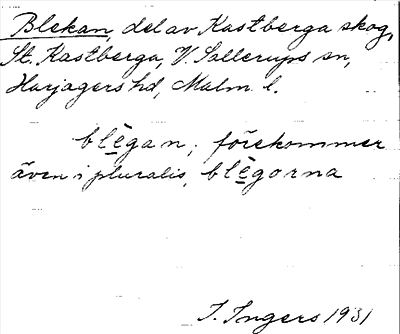 Blekan, del av Kastberga skog,
St. Kastberga, V. Sallerups sn,
Harjagers hd, Malm. l.
blègan; förekommer
även i pluralis, blègorna
I. Ingers 1931